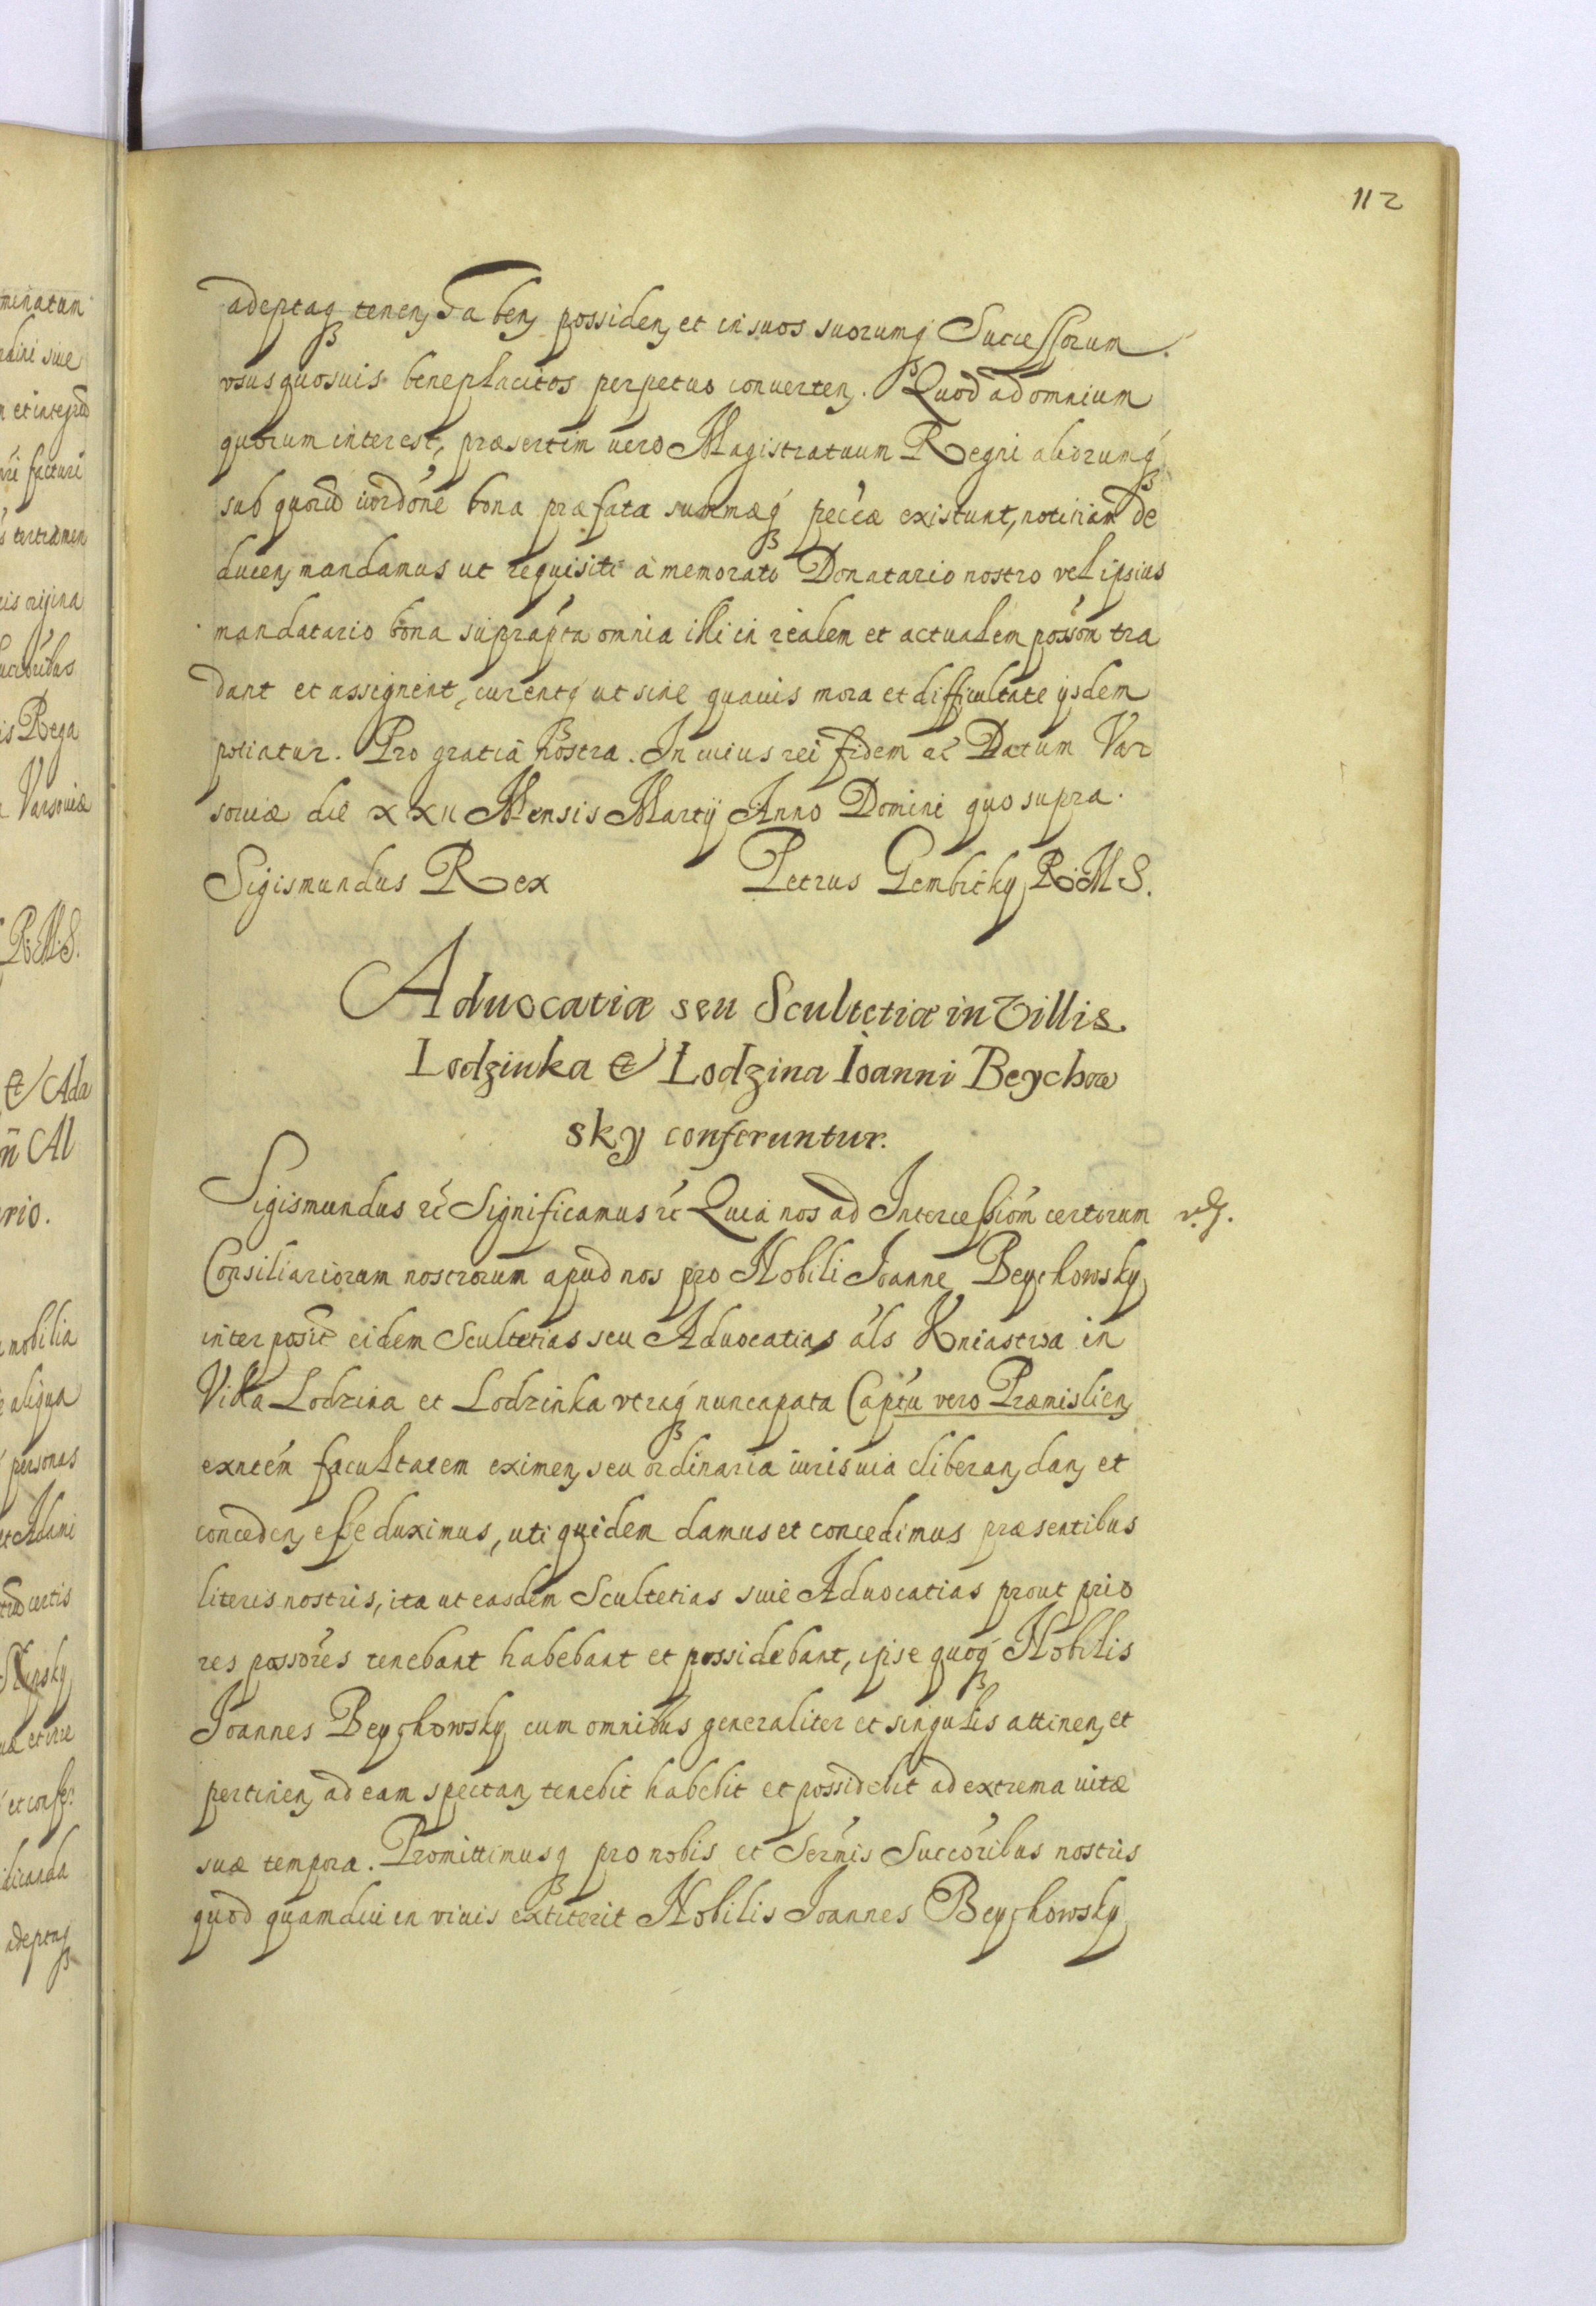 112
adeptaq tenen, haben, possiden, et in suos suorumq Successorum
vsus quosuis beneplacitos perpetuo conuerten. Quod ad omnium
quorum interest, præsertim uero Magistratuum Regni aliorumq
sub quorū iurdóne bona præfata summæq peccæ existunt, notitiam de
ducen, mandamus ut requisiti à memorato Donatario nostro vel ipsius
mandatario bona suprapta omnia illi in realem et actualem possōn tra
dant et assignent, curentq ut sine quauis mora et difficultate ysdem
potiatur. Pro gratiâ nostra. In cuius rei fidem ac Datum Var
souiæ die XXII Mensis Martij Anno Domini quo supra.
Sigismundus Rex Petrus Gembicky R. M S.
Aduocatiæ seu Scultetiæ in Villis
Lodzinka et Lodzina Ioanni Beychow
sky conferuntur.
Sigismundus rc Significamus rc Quia nos ad Intercessióm certorum
Consiliariorum nostrorum apud nos pro Nobili Joanne Beychowsky
interposit eidem Scultetias seu Aduocatias áls Kniastwa in
Villa Lodzina et Lodzinka vtraq nuncapata Captu vero Præmislien,
exntém facultatem eximen, seu ordinaria iuris uia liberan, dan, et
conceden, esse duximus, uti quidem damus et concedimus præsentibus
literis nostris, ita ut easdem Scultetias siue Aduocatias prout prio
res possores tenebant habebant et possidebant, ipse quoq Nobilis
Joannes Beychowsky cum omnibus generaliter et singulis attinen, et
pertinen, ad eam spectan, tenebit habebit et possidebit ad extrema uitæ
suæ tempora. Promittimusq pro nobis et Sermis Succoribus nostris
quod quamdiu in viuis extiterit Nobilis Joannes Beychowsky